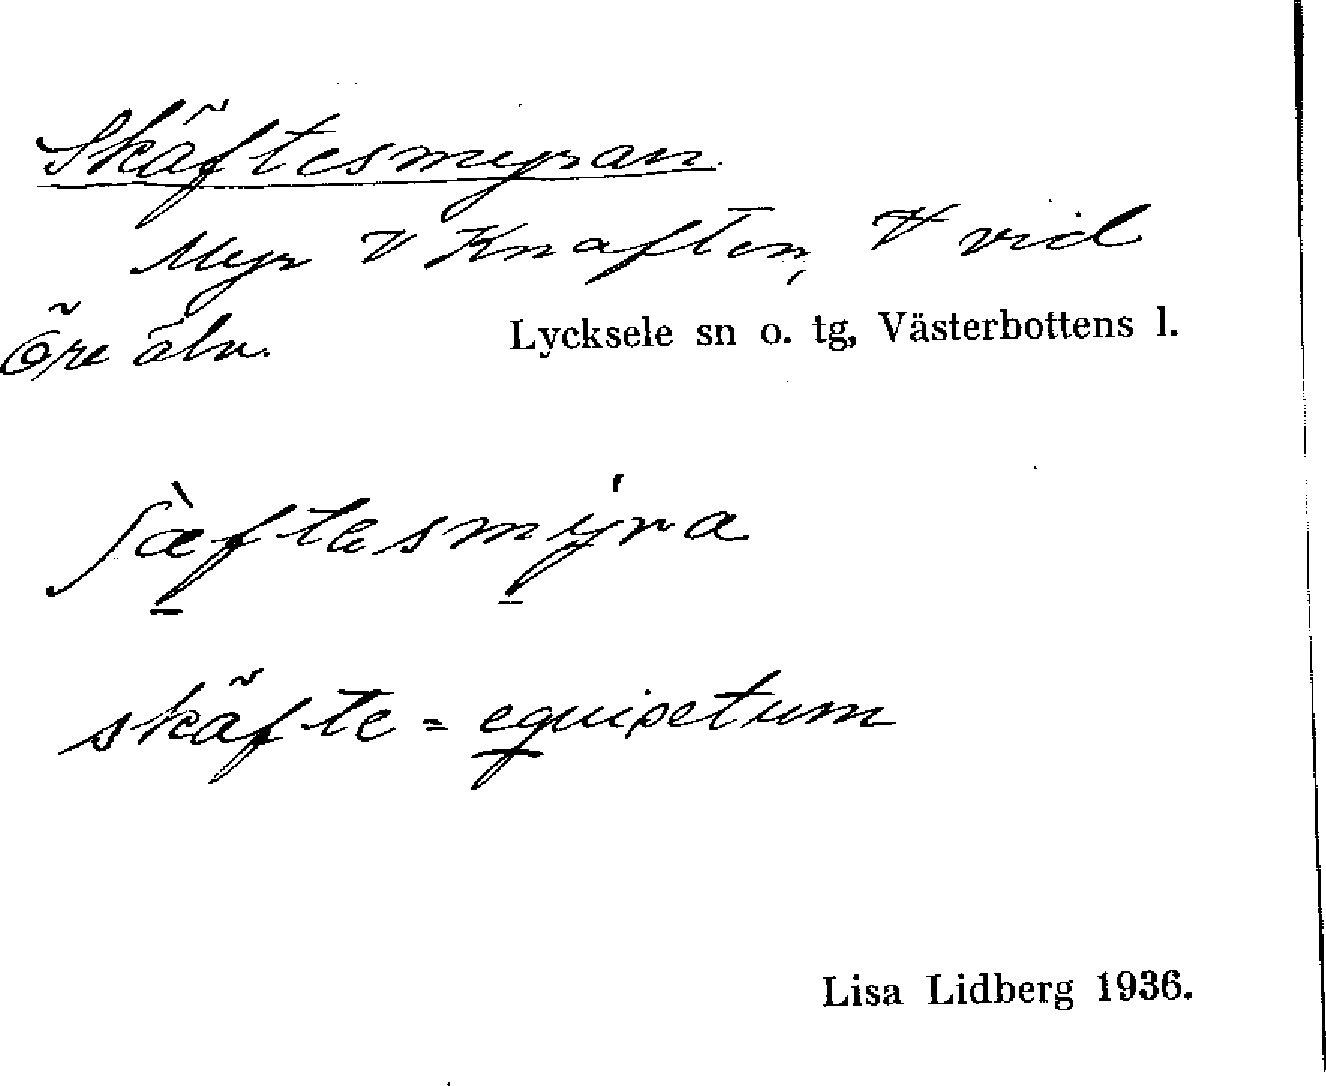 Skäftesmyran.
Myr V Knaften, V vid
Öre älv. Lycksele sn o. tg, Västerbottens l.
ʃæ̀ftesmýra
skäfte = equisetum
Lisa Lidberg 1936.